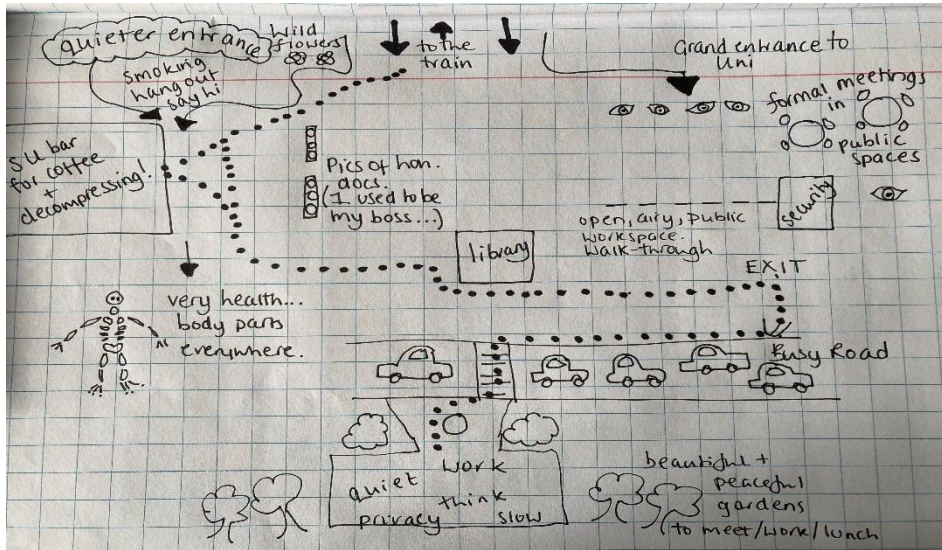 quieter entrance
Wild
flowers
smoking
hang out
say hi
to the
train
Grand entrance to
Uni
formal meetings
in
public
spaces
SU bar
for coffee
+
decompressing!
Pics of hon.
docs.
(1 used to be
my boss...)
security
open, airy, public
workspace.
walk-through
library
EXIT
very health...
body parts
everywhere.
Busy Road
work
quiet
think
privacy
slow
beautiful +
peaceful
gardens
to meet/work/lunch